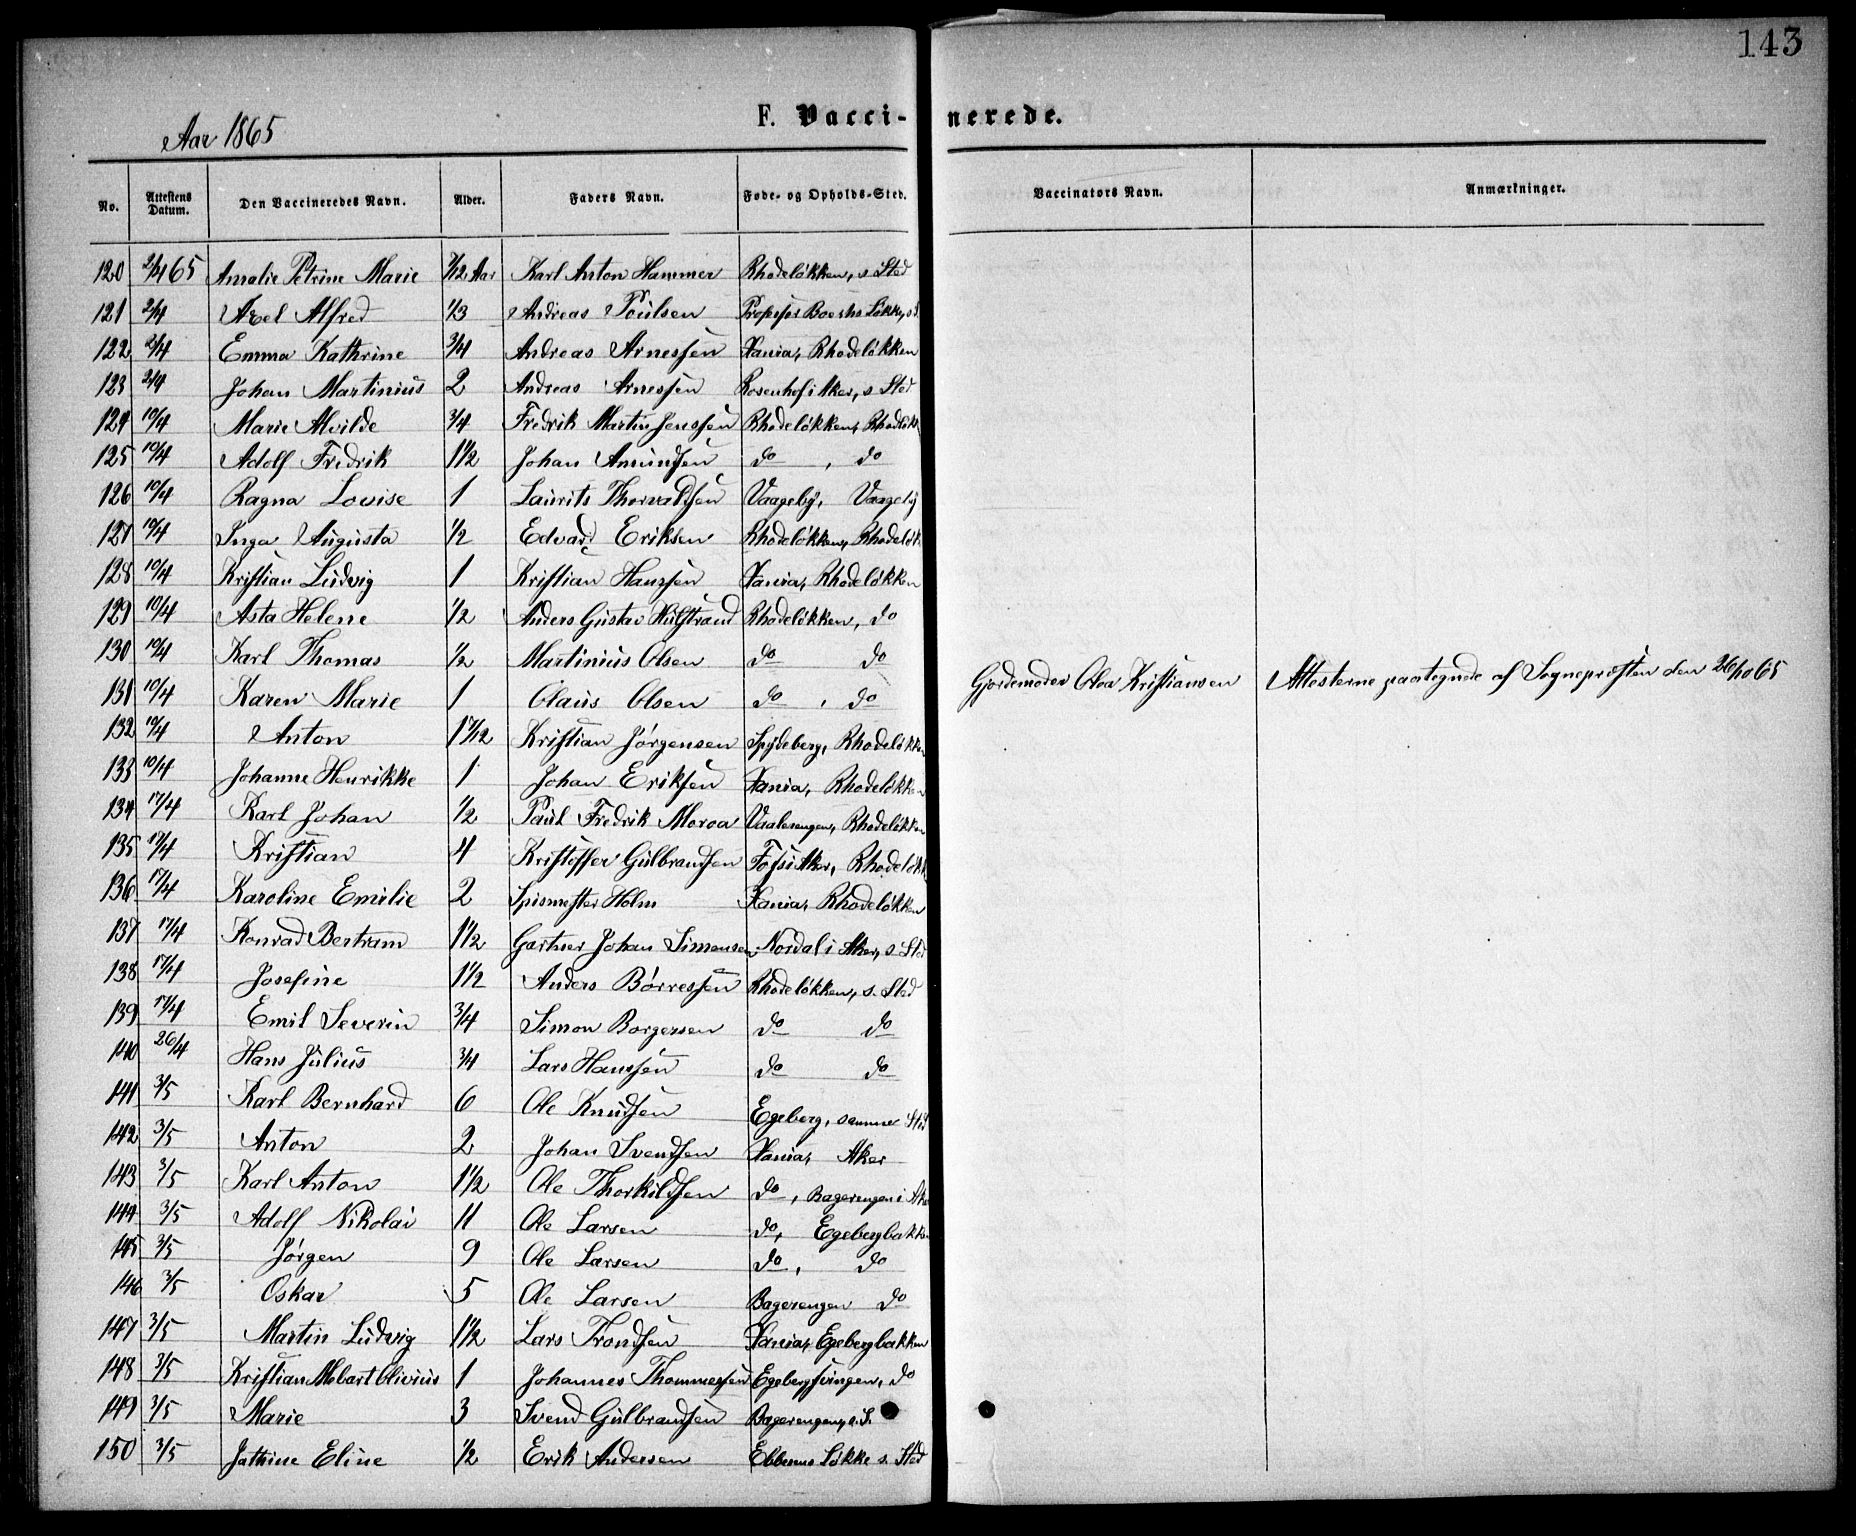 143
F. Vaccinerede.
Aar 1865
No. Attestens Datum. Den Vaccineredes Navn. Alder. Faders Navn. Føde- og Opholds-Sted. Vaccinators Navn. Anmærkninger.
120 2/4 65 Amalie Petrine Marie 7/12 Aar Karl Anton Hammer Rhodeløkken, s. Sted
121 2/4 Axel Alfred 1/3 Andreas Poulsen Professor Boecks Løkke, s.
122 2/4 Emma Kathrine 3/4 Andreas Arnessen Xania, Rhodeløkken
123 2/4 Johan Martinius 2 Andreas Arnessen Rosenhof i Aker, s Sted
124 10/4 Marie Alvilde 3/4 Fredrik Martin Jenssen Rhodeløkken, Rhodeløkk
125 10/4 Adolf Fredrik 1 1/2 Johan Amundsen do , do
126 10/4 Ragna Lovise 1 Laurits Thorvaldsen Vaageby, Vaageby
127 10/4 Inga Augusta 1/2 Edvard Eriksen Rhodeløkken, Rhodeløk
128 10/4 Kristian Ludvig 1 Kristian Hanssen Xania, Rhodeløkken
129 10/4 Asta Helene 1/2 Anders Gustav Hulstrand Rhodeløkken, do
130 10/4 Karl Thomas 1/2 Martinius Olsen do do
131 10/4 Karen Marie 1 Olaus Olsen do , do Gjordemoder Olea Kristiansen Attesterne paategnede af Sogneprosten den 26/10 65
132 10/4 Anton 1 7/12 Kristian Jørgensen Spydeberg, Rhodeløkken
133 10/4 Johanne Henrikke 1 Johan Eriksen Xania, Rhodeløkken
134 17/4 Karl Johan 1/2 Paul Fredrik Moroa Vaalerengen, Rhodeløkken
135 17/4 Kristian 4 Kristoffer Gulbrandsen Fossi Aker, Rhodeløkk
136 17/4 Karoline Emilie 2 Spismester Holm Xania, Rhodeløkken
137 17/4 Konrad Bertram 1 1/2 Gartner Johan Simensen Nordal i Aker, s. Sted
138 17/4 Josefine 1 1/2 Anders Børressen Rhodeløkken, s. Sted
139 17/4 Emil Severin 3/4 Simon Borgersen do do
140 26/4 Hans Julius 3/4 Lars Hanssen do do
141 3/5 Karl Bernhard 6 Ole Knudsen Egeberg, samme Sted
142 3/5 Anton 2 Johan Svendsen Xania, Aker
143 3/5 Karl Anton 1 1/2 Ole Thorkildsen do , Bagerengen i Ake
144 3/5 Adolf Nikolai 11 Ole Larsen do, Egebergbakken
145 3/5 Jørgen 9 Ole Larsen do , do
146 3/5 Oskar 5 Ole Larsen Bagerengen do
147 3/5 Martin Ludvig 1 1/2 Lars Trondsen Xania, Egebergbakken
148 3/5 Kristian Albart Olivius 1 Johannes Thommessen Egebergsvingen, do
149 3/5 Marie 3 Svend Gulbrandsen Bagerengen, s. S.
150 3/5 Jathine Eline 1/2 Erik Andersen Ebbesens Løkke s. Sted